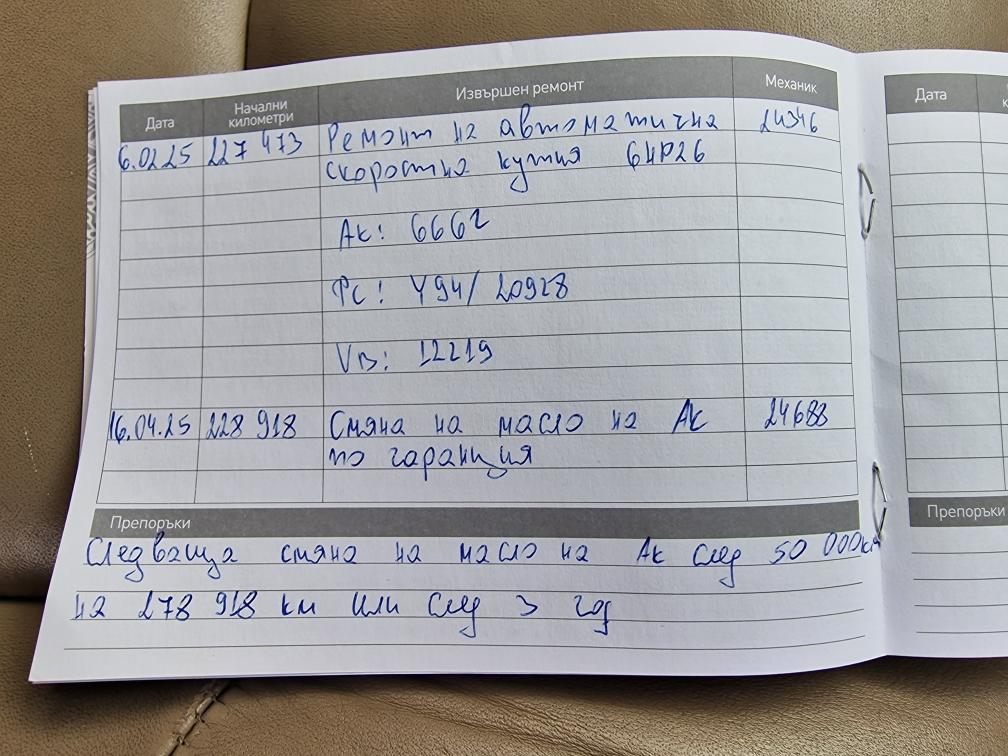 Дата Начални километри Извършен ремонт Механик
6.02.25 227 473 Ремонт на автоматична 24346
скоростна кутия 6HP26
АК: 6662
РС: Y94/20928
VB: 12219
16.04.25 228 918 Смяна на масло на АК 24688
по гаранция
Препоръки
Следваща смяна на масло на АК след 50 000км
на 278 918 км или след 3 год
Дата
Препоръки